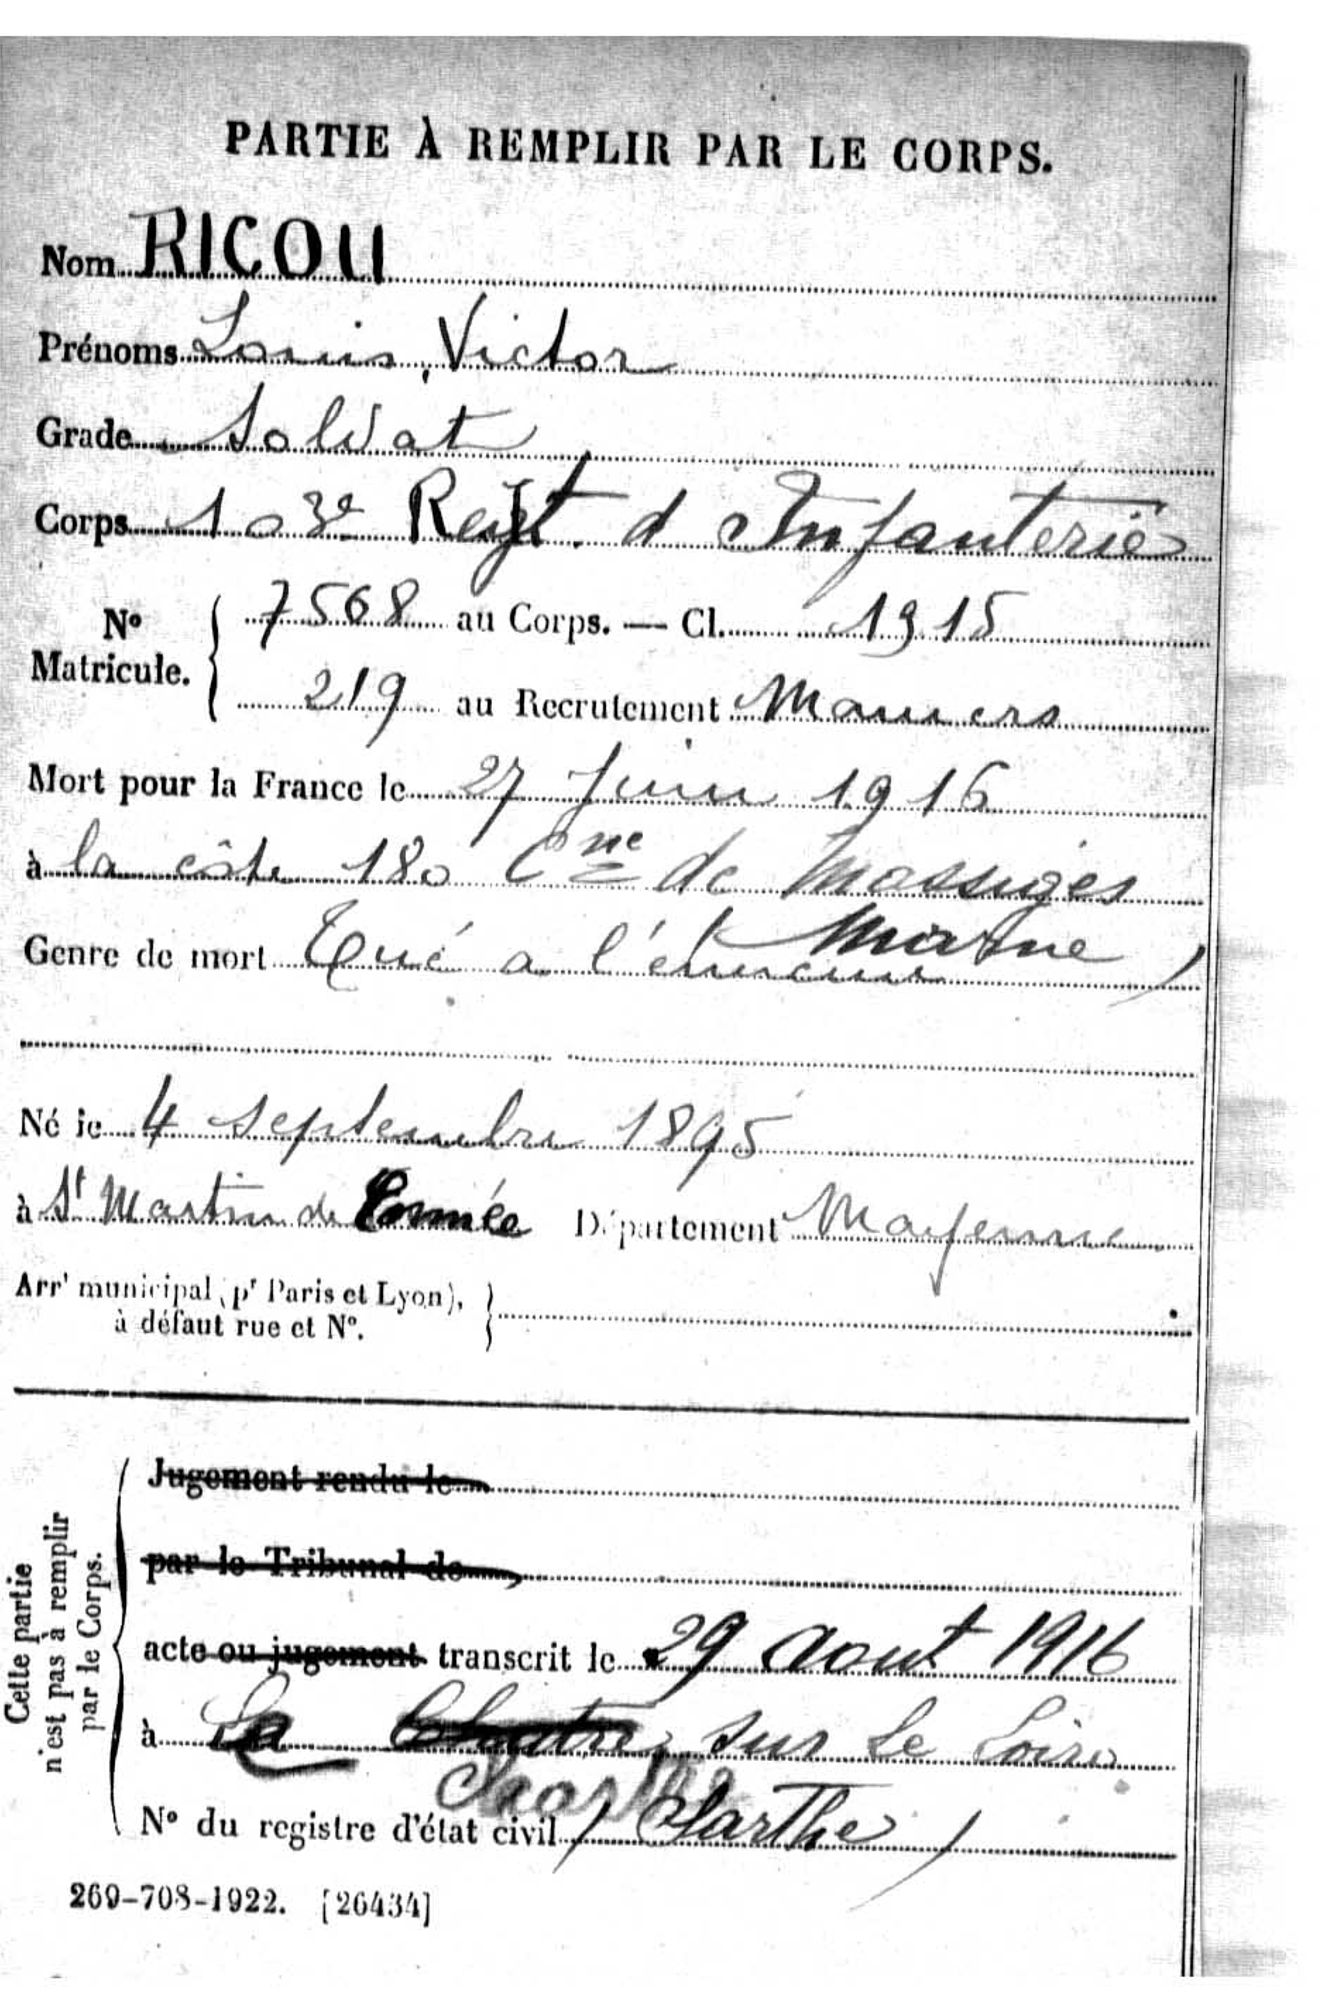 PARTIE À REMPLIR PAR LE CORPS.
Nom RICOU
Prénoms Louis, Victor
Grade Soldat
Corps 103e Regt. d Infanterie
No Matricule. { 7568 au Corps. — Cl. 1915
219 au Recrutement Mamers
Mort pour la France le 27 Juin 1916
à la côte 180 Cne de Massiges
Marne )
Genre de mort Tué a l'ennemi
Né le 4 septembre 1895
à St Martin de Département Mayenne
Arrt municipal (pr Paris et Lyon), à défaut rue et No. }
Cette partie n'est pas à remplir par le Corps.
Jugement rendu le
par le Tribunal de
acte ou jugement transcrit le 29 Aout 1916
à La sur Le Loir
No du registre d'état civil ( Sarthe )
269-708-1922. [26434]